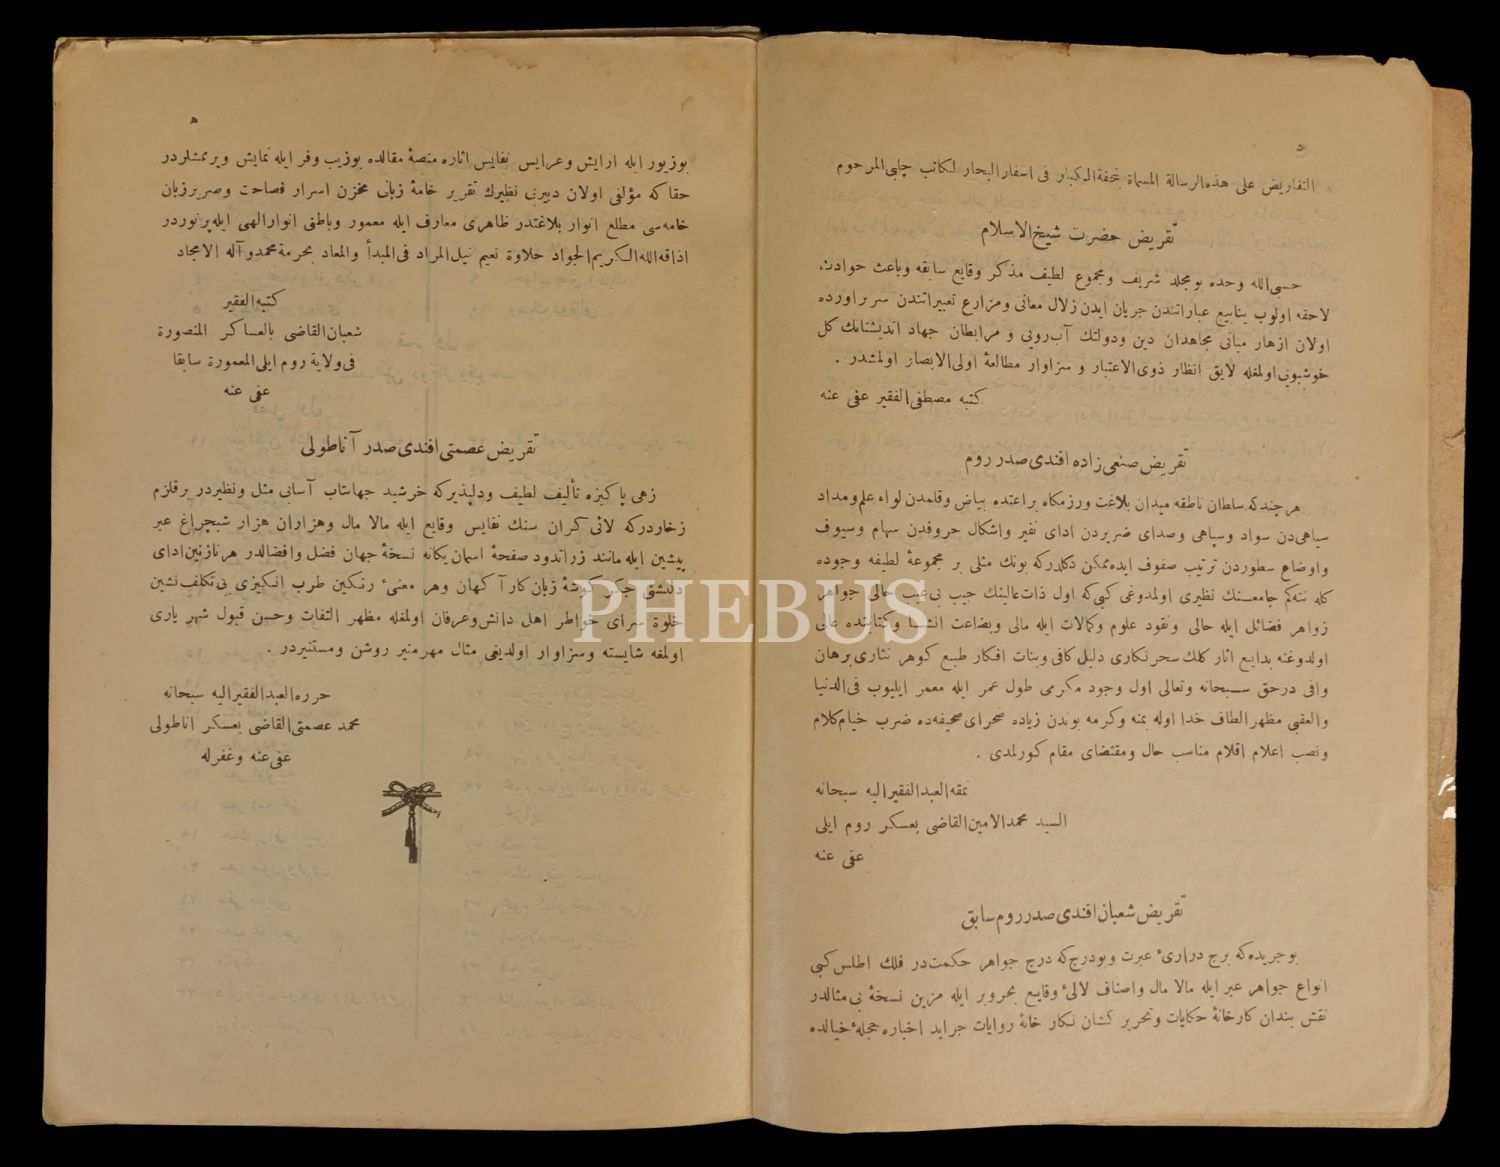 د
التقاريض على هذه الرسالة المسماة بتحفة الكبار فى اسفار البحار لكاتب چلبى المرحوم
تقريض حضرت شيخ الاسلام
حسبى الله وحده بو مجلد شريف ومجموع لطيف مذكر وقايع سابقه وباعث حوادث
لاحقه اولوب ينابيع عباراتندن جريان ايدن زلال معانى ومزارع تعبيراتندن سر براورده
اولان ازهار مبانى مجاهدان دين ودولتك آب رويى و مرابطان جهاد انديشنانك كل
خوشبويى اولمغله لايق انظار ذوى الاعتبار و سزاوار مطالعۀ اولى الابصار اولمشدر .
كتبه مصطفى الفقير عفى عنه
تقريض صنعى زاده افندى صدر روم
هر چند كه سلطان ناطقه ميدان بلاغت ورزمكاه براعتده بياض وقلمدن لواء علم ومداد
سياهى دن سواد وسپاهى وصداى ضريردن اداى نفير واشكال حروفدن سهام وسيوف
واوضاع سطوردن ترتيب صفوف ايده ممكن دكلدركه بونك مثلى بر مجموعۀ لطيفه وجوده
كله نته كم جامعنك نظيرى اولمدوغى كبى كه اول ذات عالينك جيب بى عيب حالى جواهر
زواهر فضائل ايله حالى ونقود علوم وكمالات ايله مالى وبضاعت انشا وكتابتده عالى
اولدوغنه بدايع اثار كلك سحر نكارى دليل كافى وبنات افكار طبع كوهر نثارى برهان
وافى درحق سبحانه وتعالى اول وجود مكرمى طول عمر ايله معمر ايليوب فى الدنيا
والعقبى مظهر الطاف خدا اوله بمنه وكرمه بوندن زياده صحراى صحيفه ده ضرب خيام كلام
ونصب اعلام اقلام مناسب حال ومقتضاى مقام كورلمدى .
نمقه العبد الفقير اليه سبحانه
السيد محمد الامين القاضى بعسكر روم ايلى
عفى عنه
تقريض شعبان افندى صدر روم سابق
بو جريده كه برج درارئ عبرت وبودرج كه درج جواهر حكمت در فلك اطلس كبى
انواع جواهر عبر ايله مالا مال واصناف لالئ وقايع بحروبر ايله مزين نسخۀ بى مثالدر
نقش بندان كارخانۀ حكايات وتحرير كشان نكار خانۀ روايات جرايد اخباره حجلۀ خيالده
ه
بوزيور ايله ارايش وعرايس نفايس اثاره منصۀ مقالده بوزيب وفر ايله نمايش ويرممشلردر
حقا كه مؤلفى اولان دبيرى نظيرك تقرير خامۀ زبانى مخزن اسرار فصاحت وصرير زبان
خامه سى مطلع انوار بلاغتدر ظاهرى معارف ايله معمور وباطنى انوار الهى ايله پرنوردر
اذاقه الله الكريم الجواد حلاوة نعيم نيل المراد فى المبدأ والمعاد بحرمة محمد وآله الامجاد
كتبه الفقير
شعبان القاضى بالعساكر المنصورة
فى ولاية روم ايلى المعمورة سابقا
عفى عنه
تقريض عصمتى افندى صدر آناطولى
زهى پاكيزه تأليف لطيف ودلپذيركه خرشيد جهانتاب آسابى مثل ونظيردر برقلزم
زخاردركه لالئ كران سنك نفايس وقايع ايله مالا مال وهزاران هزار شبچراغ عبر
پيشين ايله مانند زراندود صفحۀ اسمان يكانه نسخۀ جهان فضل وافضالدر هر نازنين اداى
دلنشتى جكر كوشۀ زبان كار آ كهان وهر معنئ رنكين طرب انكيزى بى تكلف نشين
خلوة سراى خواطر اهل دانش وعرفان اولمغله مظهر التفات وحسن قبول شهر يارى
اولمغه شايسته وسزاوار اولديغى مثال مهر منير روشن ومستنيردر .
حرره العبد الفقير اليه سبحانه
محمد عصمتى القاضى بعسكر اناطولى
عفى عنه وغفرله
PHEBUS